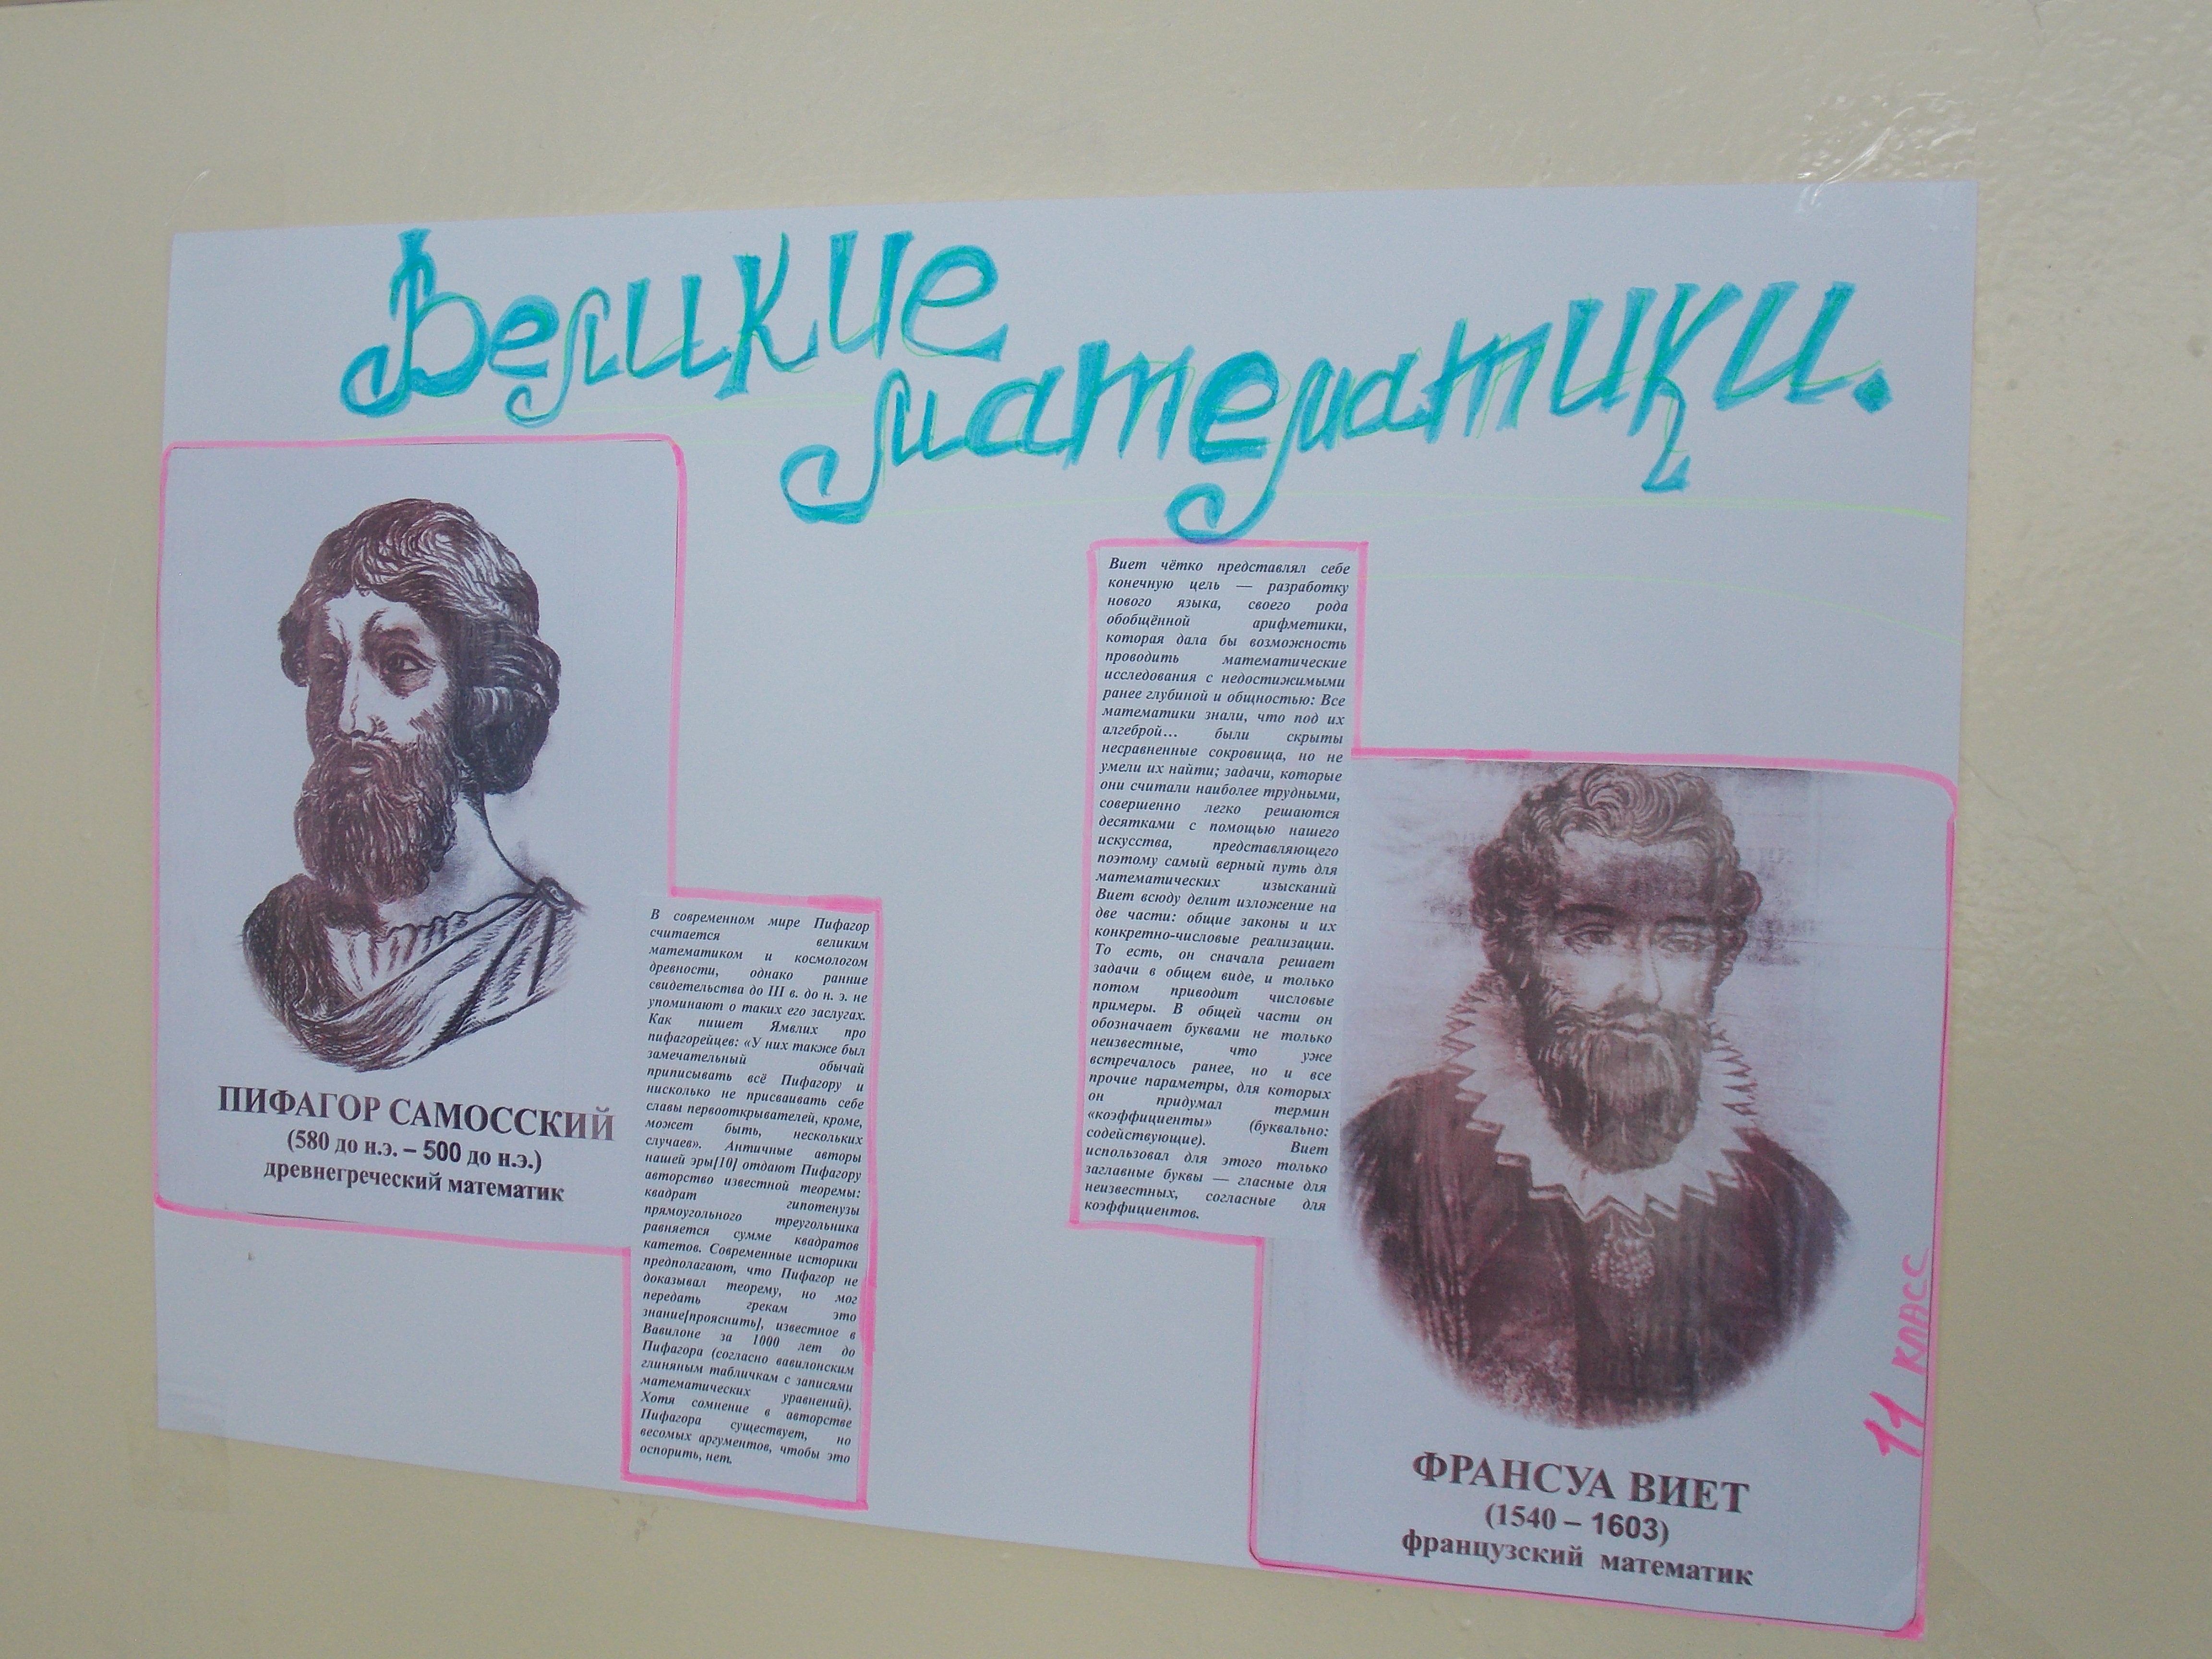 Великие
математики.
ПИФАГОР САМОССКИЙ
(580 до н.э. – 500 до н.э.)
древнегреческий математик
В современном мире Пифагор
считается великим
математиком и космологом
древности, однако ранние
свидетельства до III в. до н. э. не
упоминают о таких его заслугах.
Как пишет Ямвлих про
пифагорейцев: «У них также был
замечательный обычай
приписывать всё Пифагору и
нисколько не присваивать себе
славы первооткрывателей, кроме,
может быть, нескольких
случаев». Античные авторы
нашей эры[10] отдают Пифагору
авторство известной теоремы:
квадрат гипотенузы
прямоугольного треугольника
равняется сумме квадратов
катетов. Современные историки
предполагают, что Пифагор не
доказывал теорему, но мог
передать грекам это
знание[прояснить], известное в
Вавилоне за 1000 лет до
Пифагора (согласно вавилонским
глиняным табличкам с записями
математических уравнений).
Хотя сомнение в авторстве
Пифагора существует, но
весомых аргументов, чтобы это
оспорить, нет.
Виет чётко представлял себе
конечную цель — разработку
нового языка, своего рода
обобщённой арифметики,
которая дала бы возможность
проводить математические
исследования с недостижимыми
ранее глубиной и общностью: Все
математики знали, что под их
алгеброй… были скрыты
несравненные сокровища, но не
умели их найти; задачи, которые
они считали наиболее трудными,
совершенно легко решаются
десятками с помощью нашего
искусства, представляющего
поэтому самый верный путь для
математических изысканий
Виет всюду делит изложение на
две части: общие законы и их
конкретно-числовые реализации.
То есть, он сначала решает
задачи в общем виде, и только
потом приводит числовые
примеры. В общей части он
обозначает буквами не только
неизвестные, что уже
встречалось ранее, но и все
прочие параметры, для которых
он придумал термин
«коэффициенты» (буквально:
содействующие). Виет
использовал для этого только
заглавные буквы — гласные для
неизвестных, согласные для
коэффициентов.
ФРАНСУА ВИЕТ
(1540 – 1603)
французский математик
11 класс